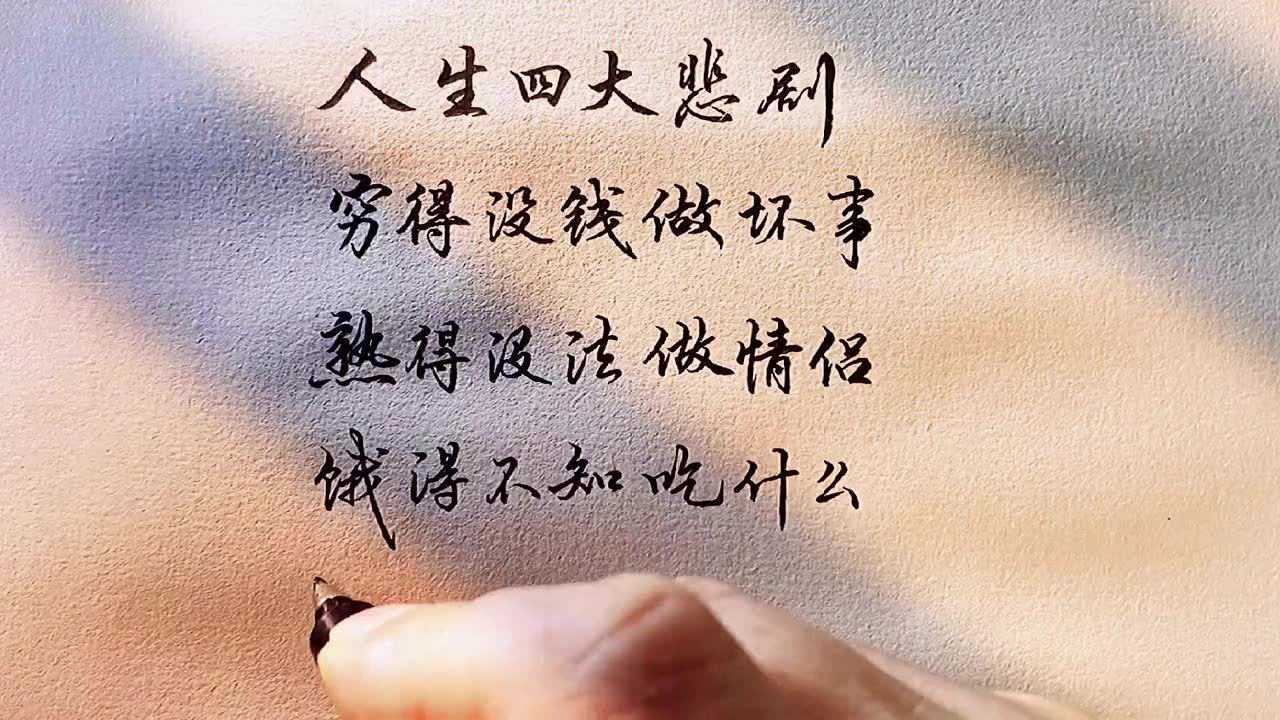 人生四大悲剧
穷得没钱做坏事
熟得没法做情侣
饿得不知吃什么